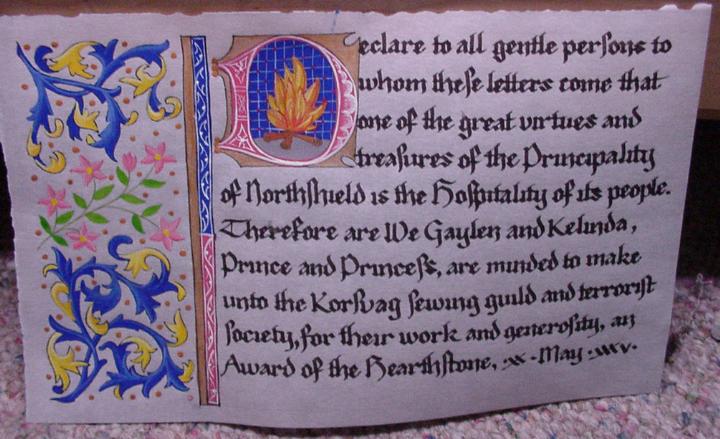 Declare to all gentle perſons to
whom theſe letters come that
one of the great virtues and
treaſures of the Principality
of Northſhield is the Hoſpitality of its people.
Therefore are We Gaylen and Kelinda,
Prince and Princeſs, are minded to make
unto the Korſvag ſewing guild and terroriſt
ſociety, for their work and generoſity, an
Award of the Hearthſtone, xx · May